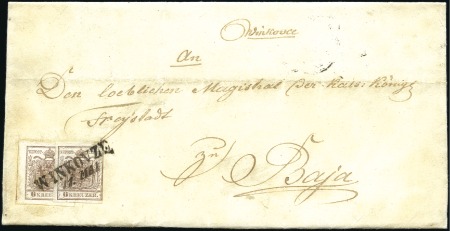 Winkovce
An
Den loeblichen Magistrat der kais: königl:
Freystadt
zu
Baja
WINKOVZE
6 KREUZER
6 KREUZER